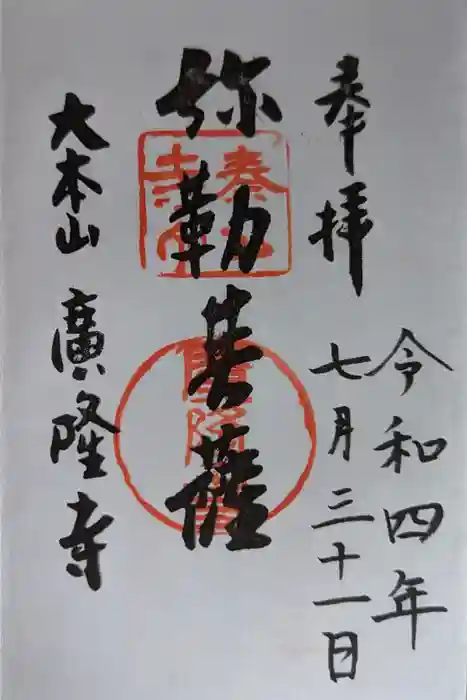 奉拝
令和四年
七月三十一日
弥勒菩薩
大本山 廣隆寺